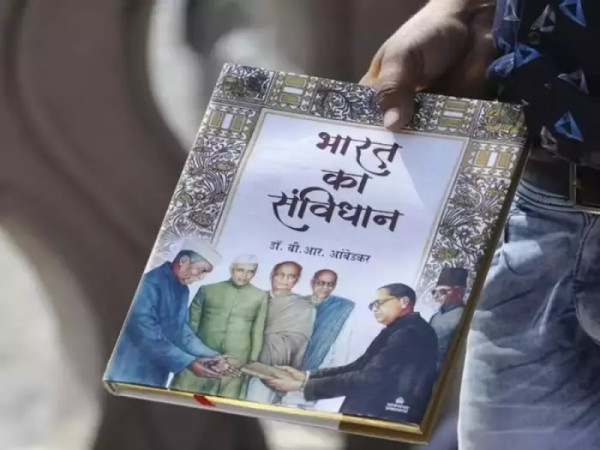 भारत
का
संविधान
डॉ. बी.आर. आंबेडकर